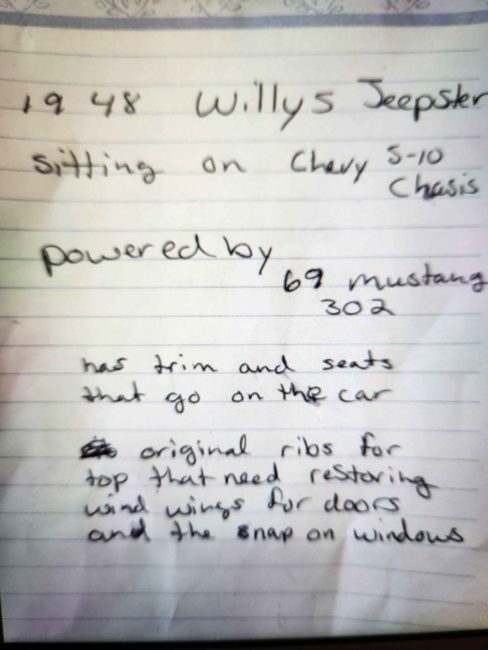 1948 Willys Jeepster
sitting on Chevy S-10
Chasis
powered by
69 mustang
302
has trim and seats
that go on the car
original ribs for
top that need restoring
wind wings for doors
and the snap on windows